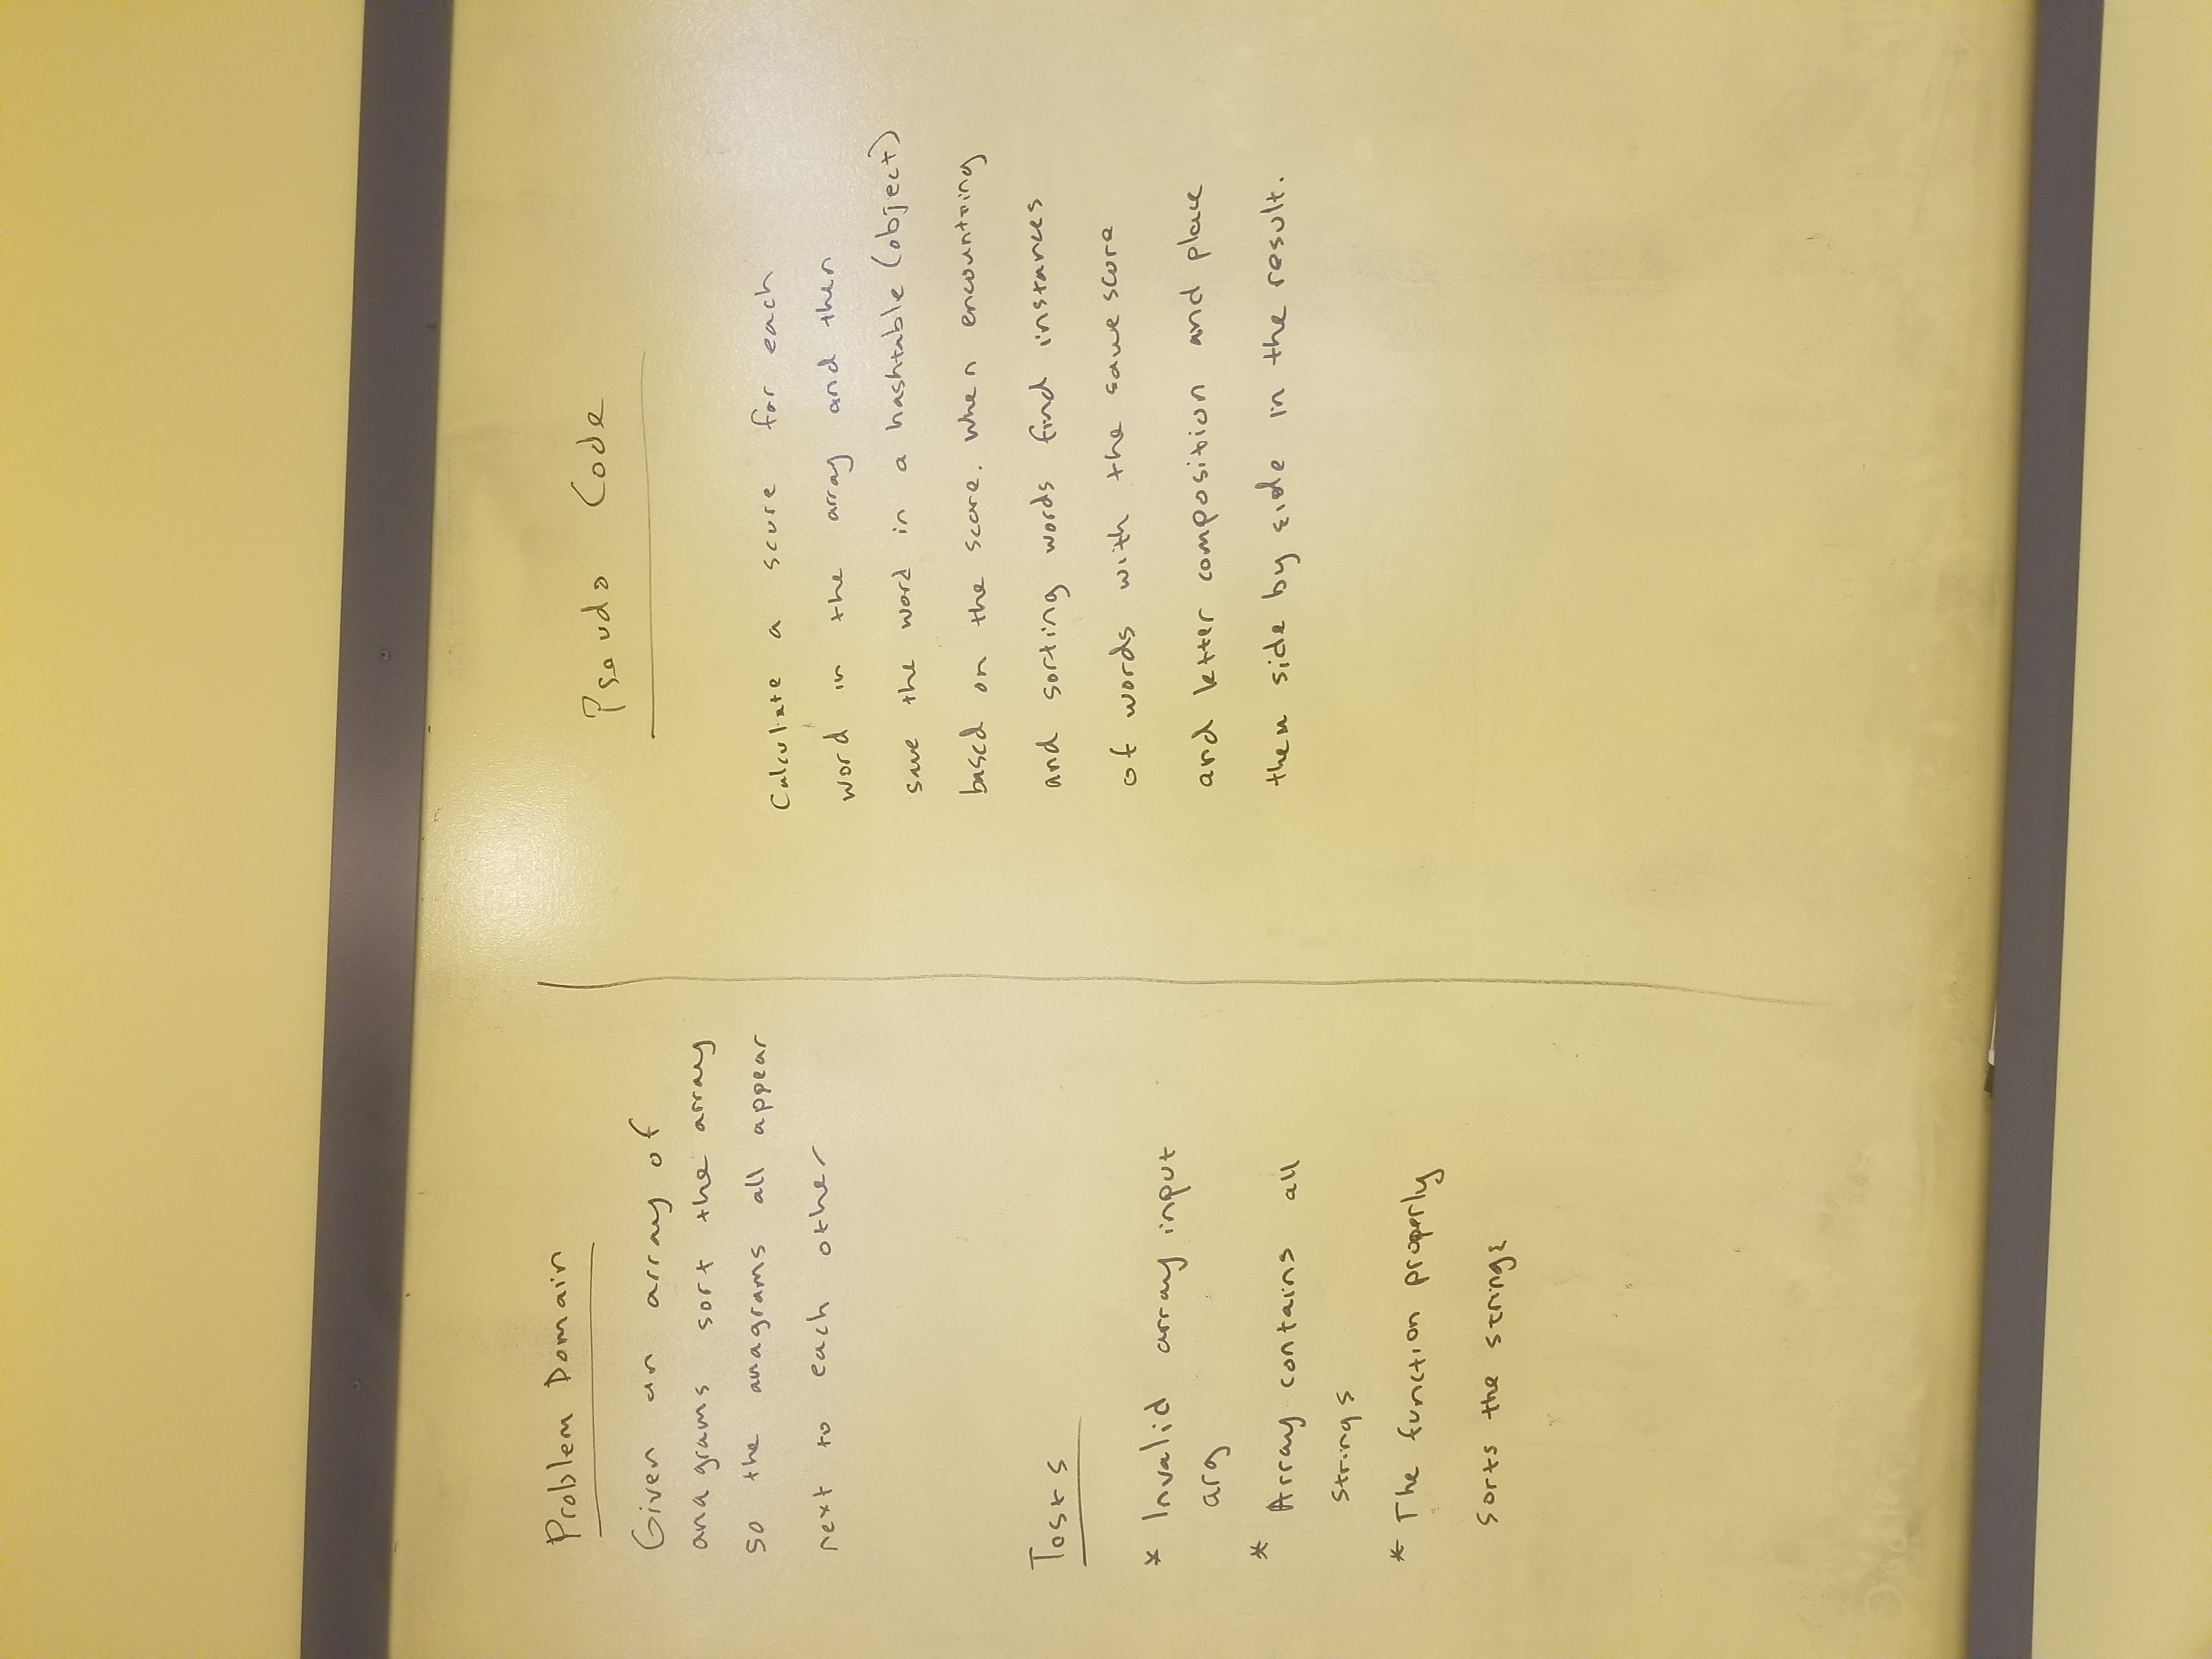 Problem Domain
Given an array of
anagrams sort the array
so the anagrams all appear
next to each other
Tests
* Invalid array input
arg
* Array contains all
strings
* The function properly
sorts the strings
Pseudo Code
Calculate a score for each
word in the array and then
save the word in a hashtable (object)
based on the score. When encountring
and sorting words find instances
of words with the same score
and letter composition and place
them side by side in the result.